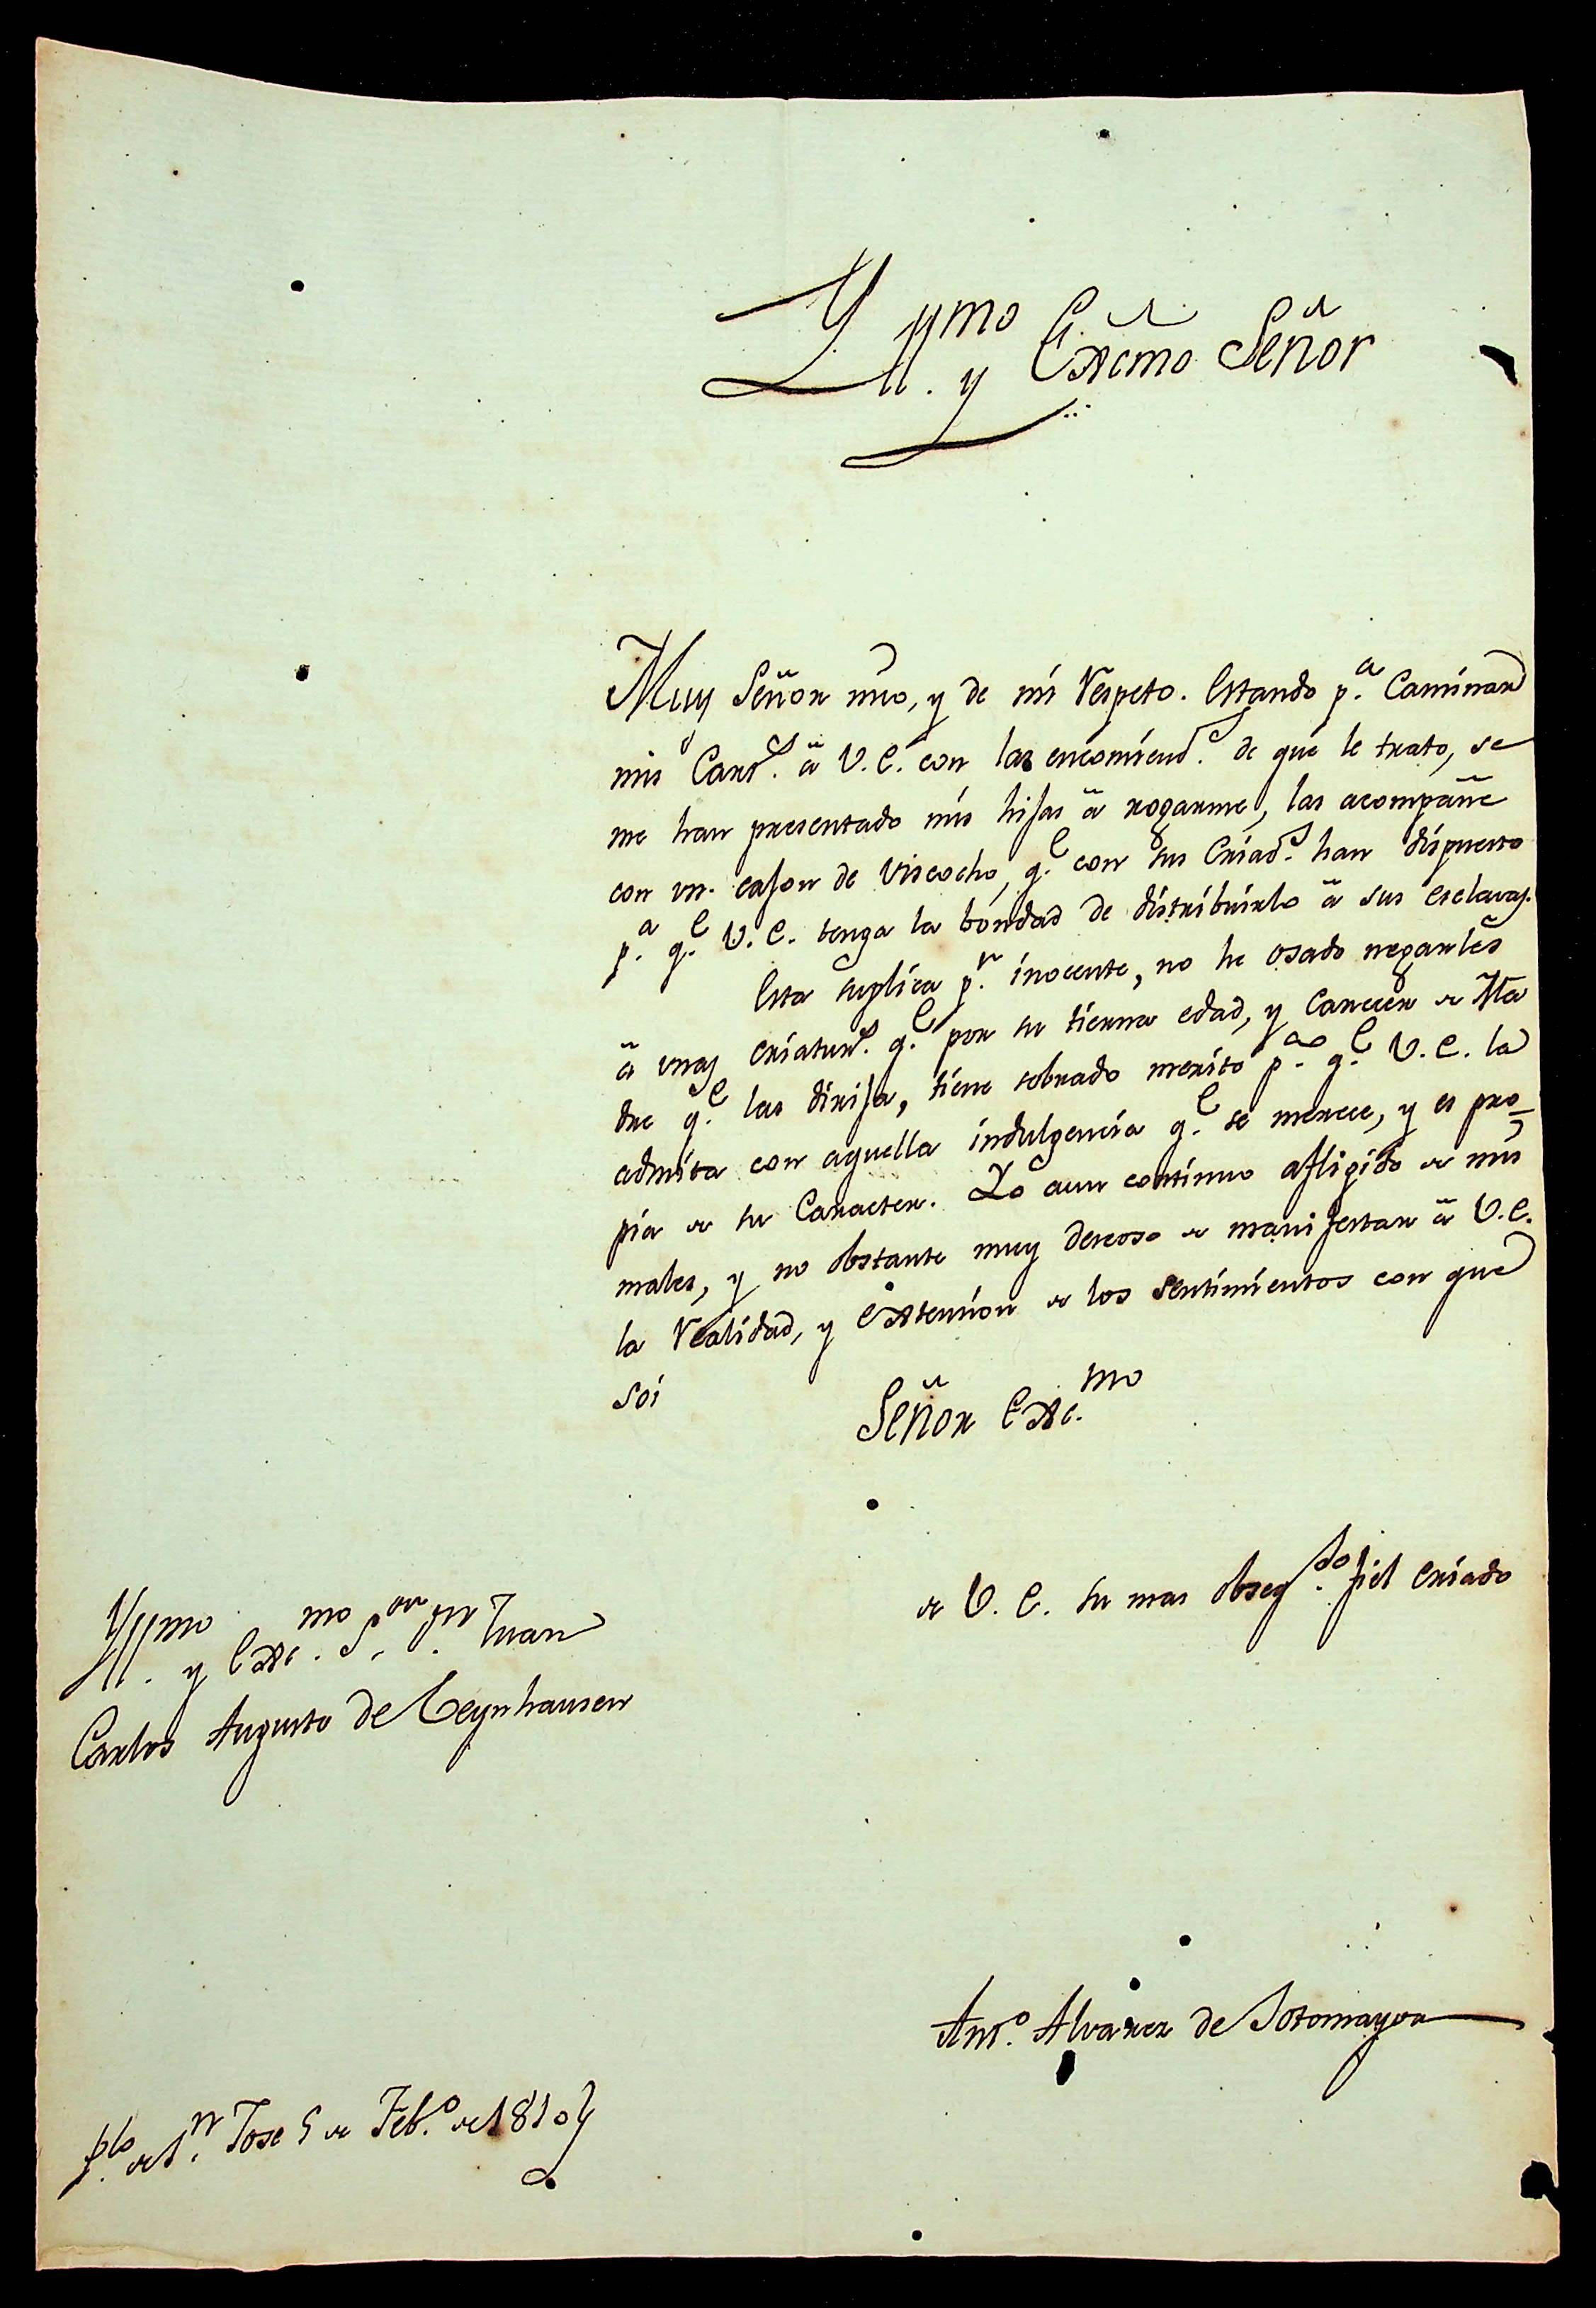 Yll.mo y Excmo Señor
Muy Señor mio, y de mi respeto. Estando p.a caminar
mis Cart.s â V.E. con las encomiend.s de que le trato, se
me han presentado mis hijas â rogarme, las acompañe
con un cajon de viscocho, q.e con sus Criad.s han dispuesto
p.a q.e V.E. tenga la bondad de distribuirlo â sus esclavas.
Esta suplica p.r inocente, no he osado negarles
â unas criatur.s q.e por su tierna edad, y carecer de Ma
dre q.e las dirija, tiene sobrado merito p.a q.e V.E. la
admita con aquella indulgencia q.e se merece, y es pro-
pia de su Caracter. Yo aun continuo afligido de mis
males, y no obstante muy deseoso de manifestar â V.E.
la realidad, y extension de los sentimientos con que
soi
Señor Exc.mo
de V.E. su mas obseq.do fiel criado
Yll.mo y Exc.mo S.or D.n Juan
Carlos Augusto de Oeynhausen
Ant.o Alvarez de Sotomayor
P.lo de S.n Jose 5 de Feb.o de 1810